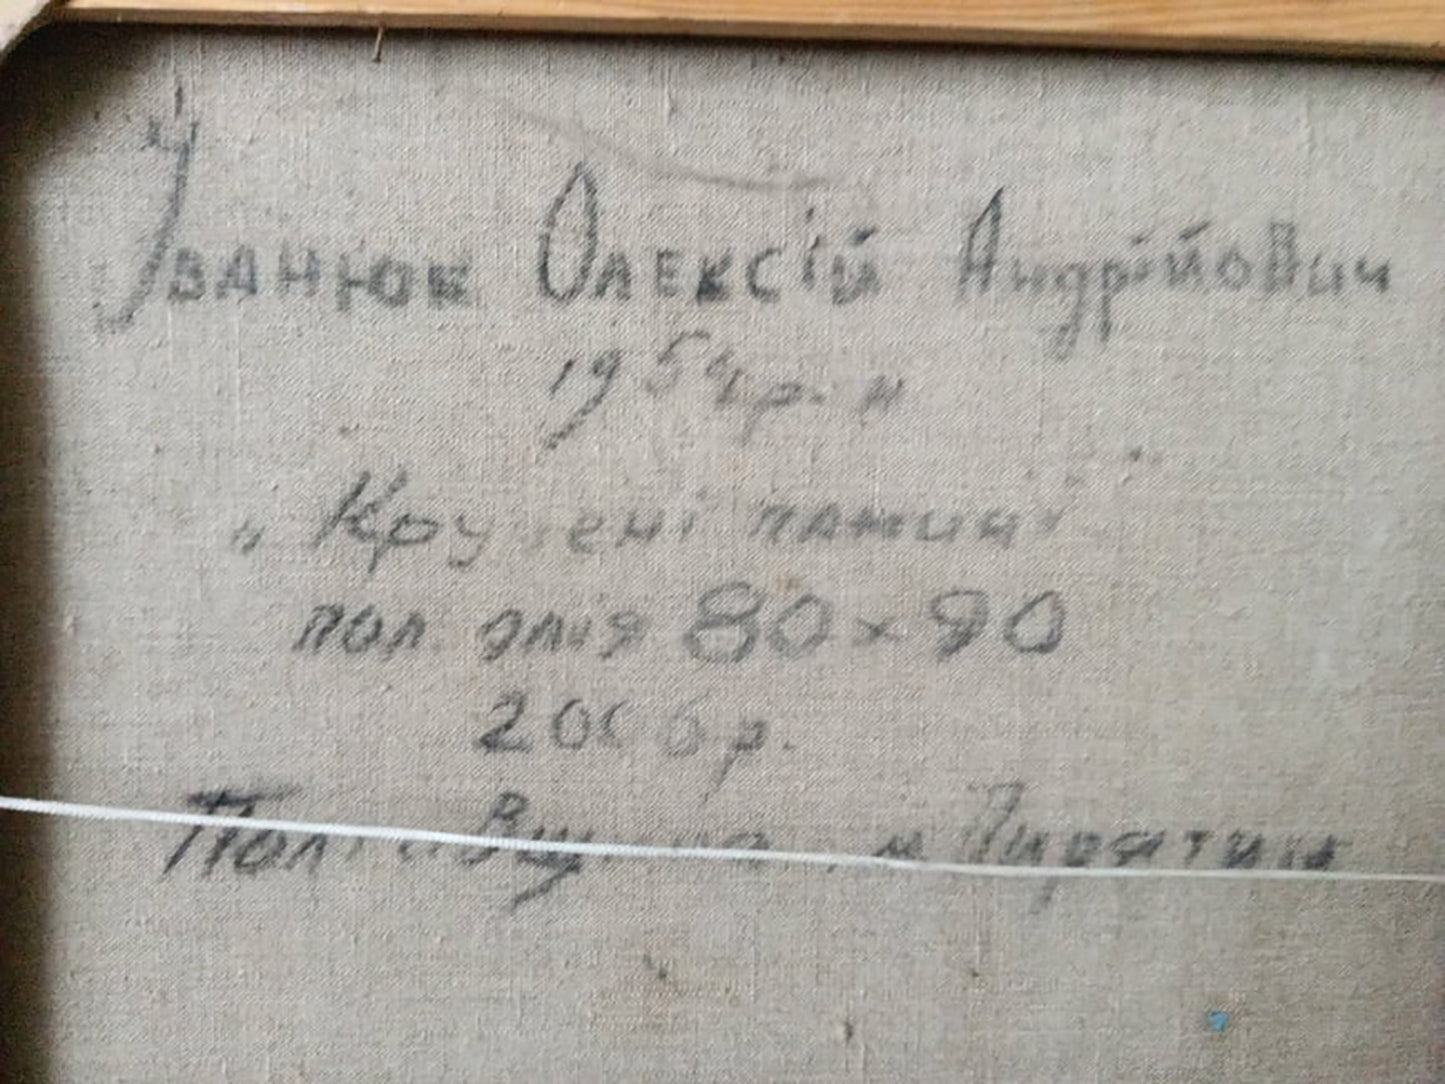 Іванюк Олексій Андрійович
1954 р. н
" Кручені паничі
пол. олія 80 х 90
2006 р.
Полтавщина, м Пирятин